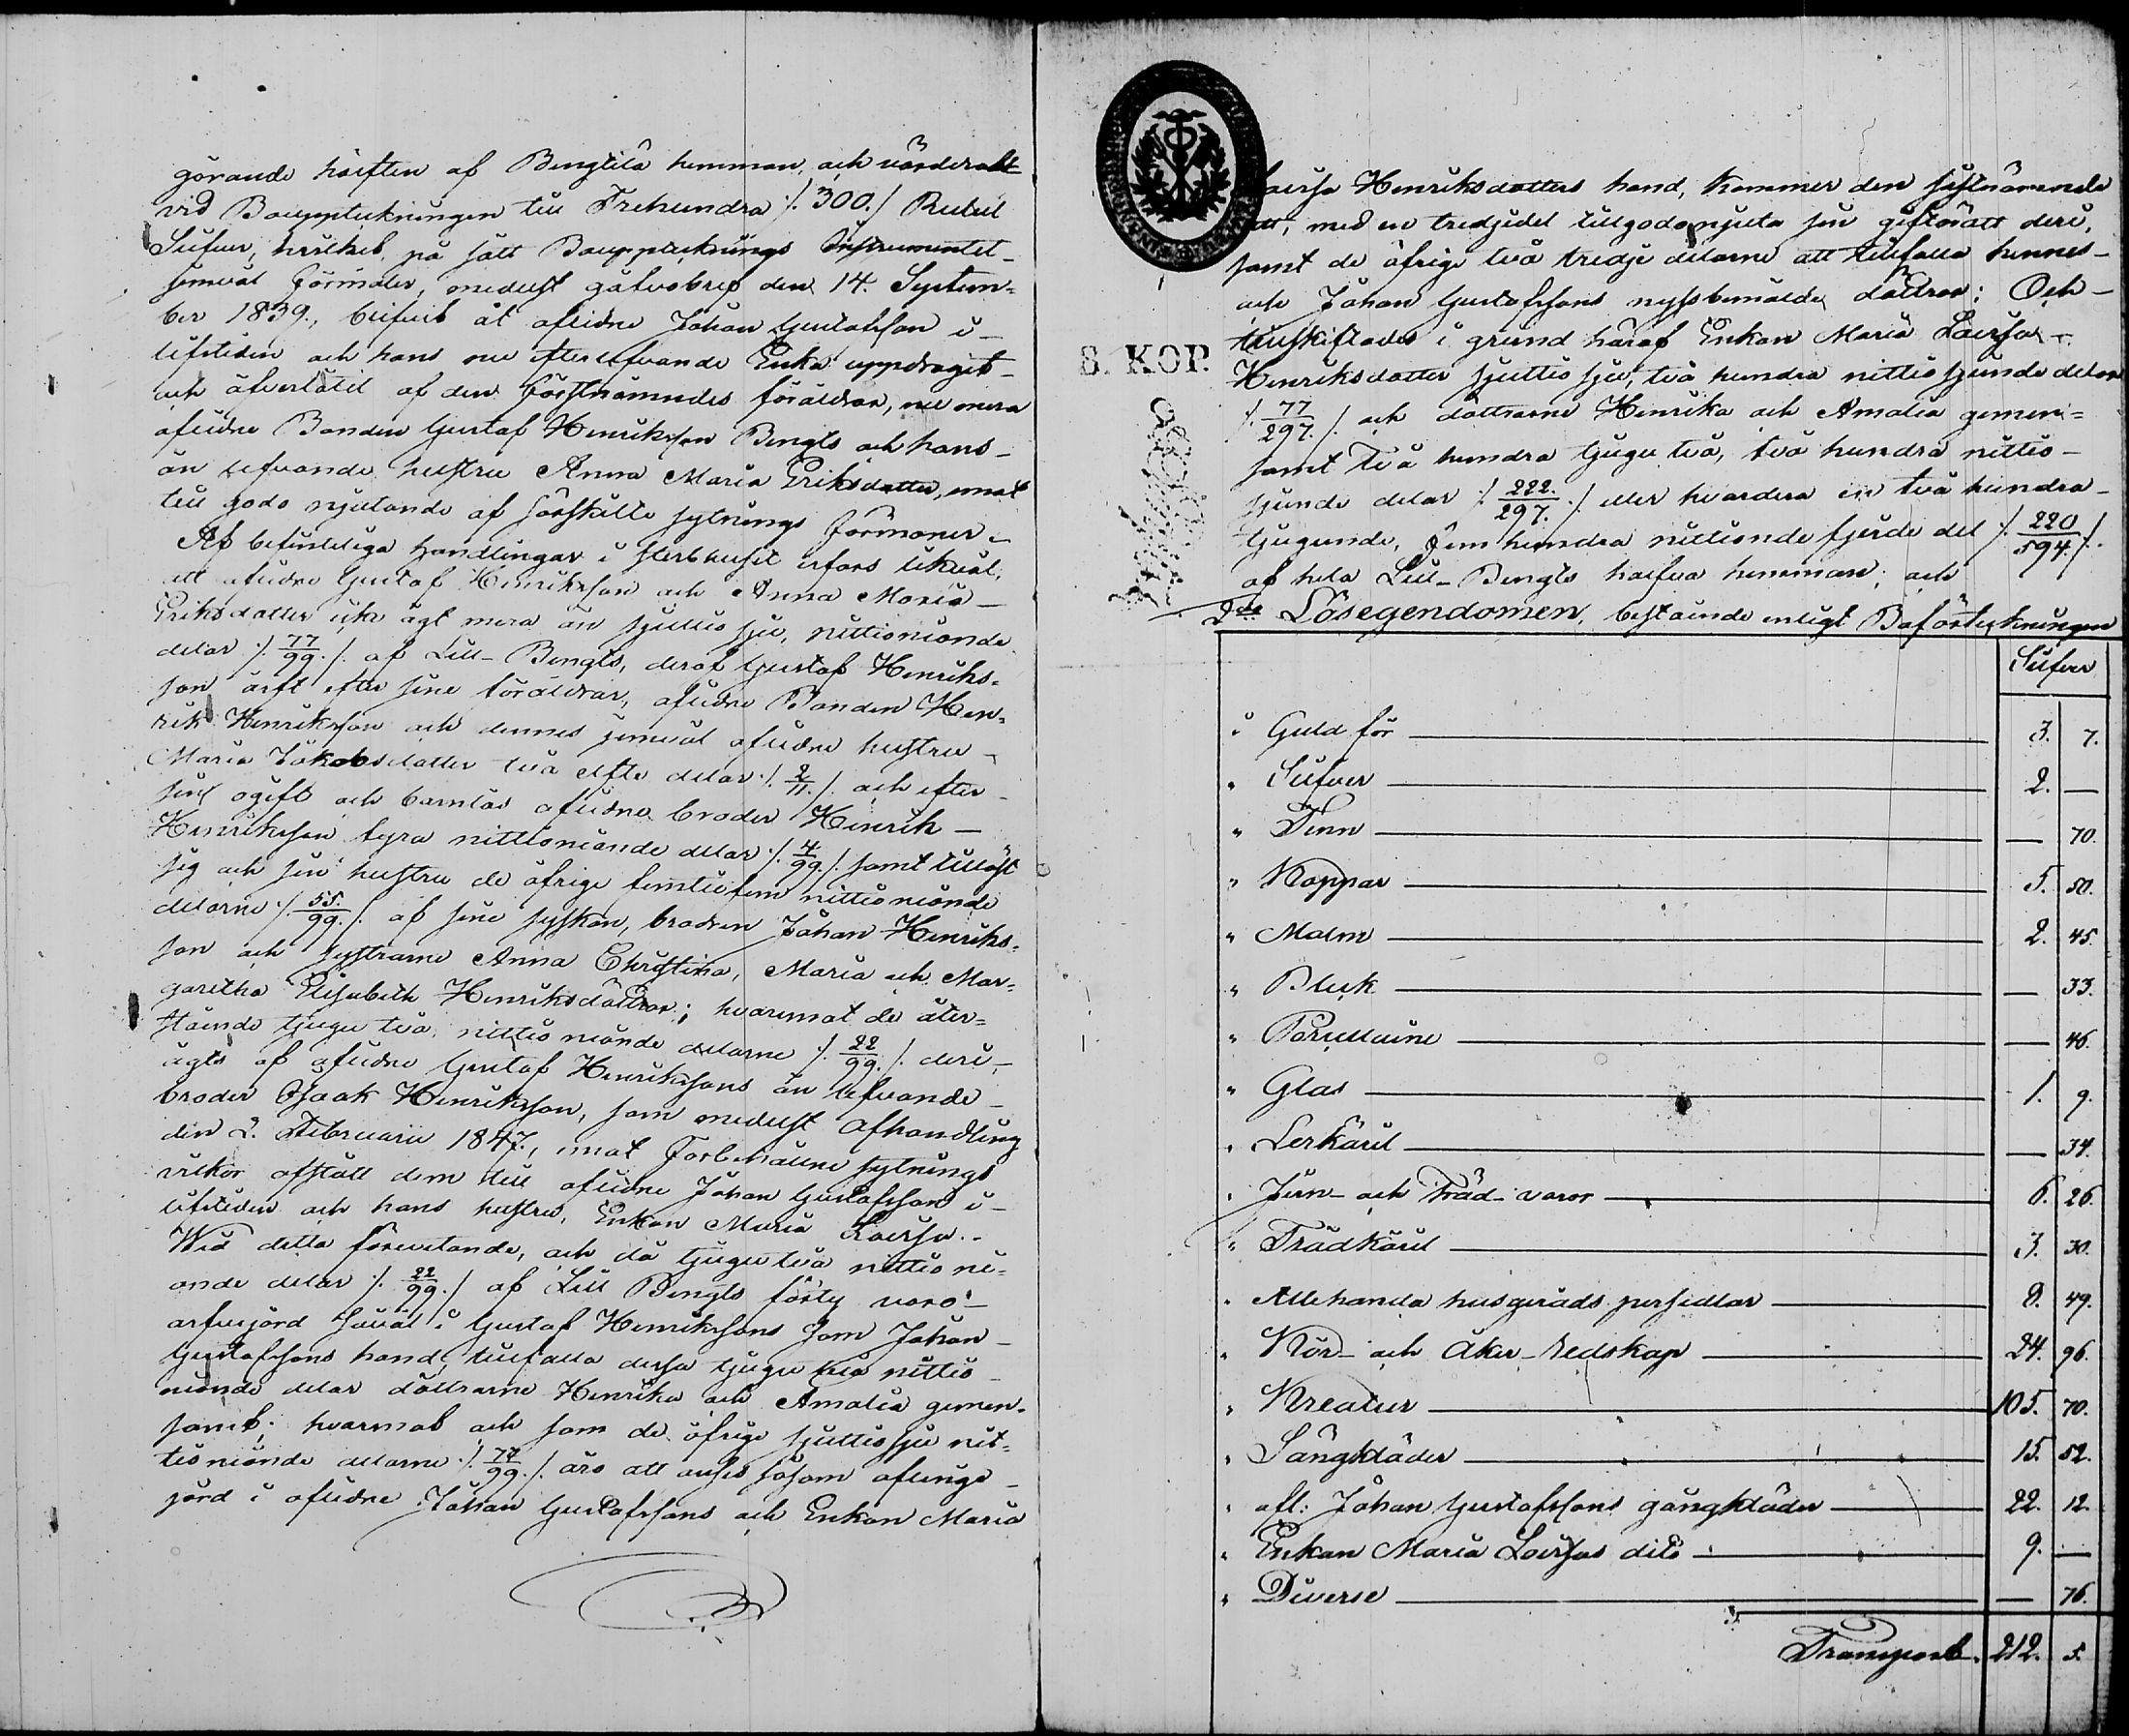 görande hälften af Bengtila hemman, och värderadt
vid Bouppteckningen till Trehundra /. 300./ Rubel
Silfver, hvilket, på sätt Bouppteknings Instrumentet
jemväl förmäler, medelst gåfvobref den 14. Septem=
ber 1839., blifvit åt aflidne Johan Gustafsson i
lifstiden och hans nu efterlefvande Enka uppdraget
och öfverlåtit af den förstnämndes föräldrar, nu mera
aflidne Bonden Gustaf Henriksson Bengts och hans
än lefvande hustru Anna Maria Eriksdotter, emot
till godo njutande af särskilte sytnings förmoner.
Af befinteliga handlingar i sterbhuset erfors likväl,
att aflidne Gustaf Henriksson och Anna Maria
Eriksdotter icke ägt mera än sjuttio sju, nittionionde
delar /. 77/99. /. af Lill-Bengts, deraf Gustaf Henriks=
son ärft efter sine föräldrar, aflidne Bonden Hen=
rik Henriksson och dennes jemväl aflidne hustru
Maria Jakobsdotter två elfte delar /. 2/11. /. och efter
sin ogift och barnlös aflidne broder Henrik
Henriksson fyra nittionionde delar /. 4/99. /. samt tillöst
sig och sin hustru de öfrige femtiofem nittionionde
delarne /. 55./99. /. af sine syskon, brodren Johan Henriks=
son och systrarne Anna Christina, Maria och Mar=
garetha Elisabeth Henriksdöttrar; hvaremot de åter=
stående tjugu två, nittio nionde delarne /. 22/99. /. deri
ägts af aflidne Gustaf Henrikssons än lefvande
broder Isaak Henriksson, som medelst afhandling
den 2. Februarii 1847., emot förbehållne sytnings
vilkor afstått dem till aflidne Johan Gustafsson i
lifstiden och hans hustru, Enkan Maria Lovisa.
Wid detta förevetande, och då tjugu två nittio ni=
onde delar /. 22/99. / af Lill Bengts förty voro
arfvejord såväl i Gustaf Henrikssons som Johan
Gustafssons hand, tillfalla dessa tjugu två nittio
nionde delar döttrarne Henrika och Amalia gemen=
samt; hvarmot och som de öfrige sjuttio sju nit=
tionionde delarne /. 77/99. /. äro att anses såsom aflinge
jord i aflidne Johan Gustafssons och Enkan Maria
Lovisa Henriksdotters hand, kommer den sistnämnda
att, med en tredjedel tillgodonjuta sin giftorätt deri,
samt de öfrige två tredje delarne att tillfalla hennes
och Johan Gustafssons nyssbemälde döttrar; Och
tillskiftades i grund häraf Enkan Maria Lovisa
S. KOP.
Henriksdotter sjuttio sju, två hundra nittio sjunde delar
/. 77/297. /. och döttrarne Henrika och Amalia gemen=
samt Två hundra tjugu två, två hundra nittio
sjunde delar /. 222./297. /. eller hvardera en två hundra
tjugunde, fem hundra nittionde fjerde del /. 220/594. /.
af hela Lill-Bengts halfva hemman; och
2do Lösegendomen, bestående enligt Boförteckningen
Silfver
i Guld för 3. 7.
" Silfver 2. —
" Tenn — 70.
" Koppar 5. 50.
" Malm 2. 45.
" Bleck — 33.
" Porcellaine — 46.
" Glas 1. 9.
" Lerkäril — 34.
" Jern- och Träd-varor 6. 26.
" Trädkäril 3. 30.
" Allehanda husgeråds persedlar 8. 49.
" Kör- och Åker-redskap 24. 96.
" Kreatur 105. 70.
" Sängkläder 15. 52.
" afl: Johan Gustafssons gångkläder 22. 12.
" Enkan Maria Lovisas dito 9. —
" Diverse — 76.
Transport. 212. 5.